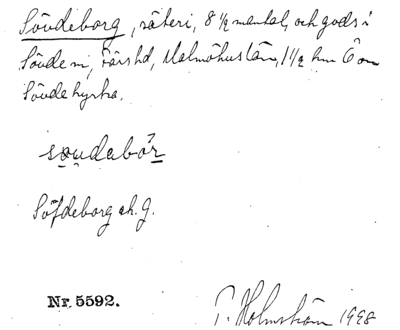 Sövdeborg, säteri, 8 1/2 mantal, och gods i
Sövde sn, Färs hd, Malmöhus län, 1 1/2 km Ö om
Sövde kyrka.
söudabór
Söfdeborg ä. h. g.
Nr. 5592.
T. Holmström 1998